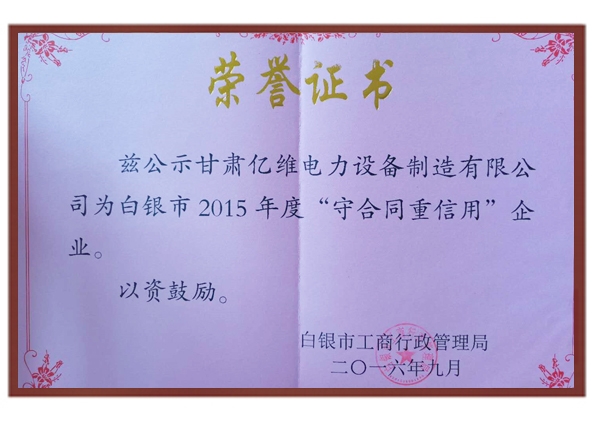 荣誉证书
兹公示甘肃亿维电力设备制造有限公
司为白银市 2015 年度“守合同重信用”企
业。
以资鼓励。
白银市工商行政管理局
二〇一六年九月